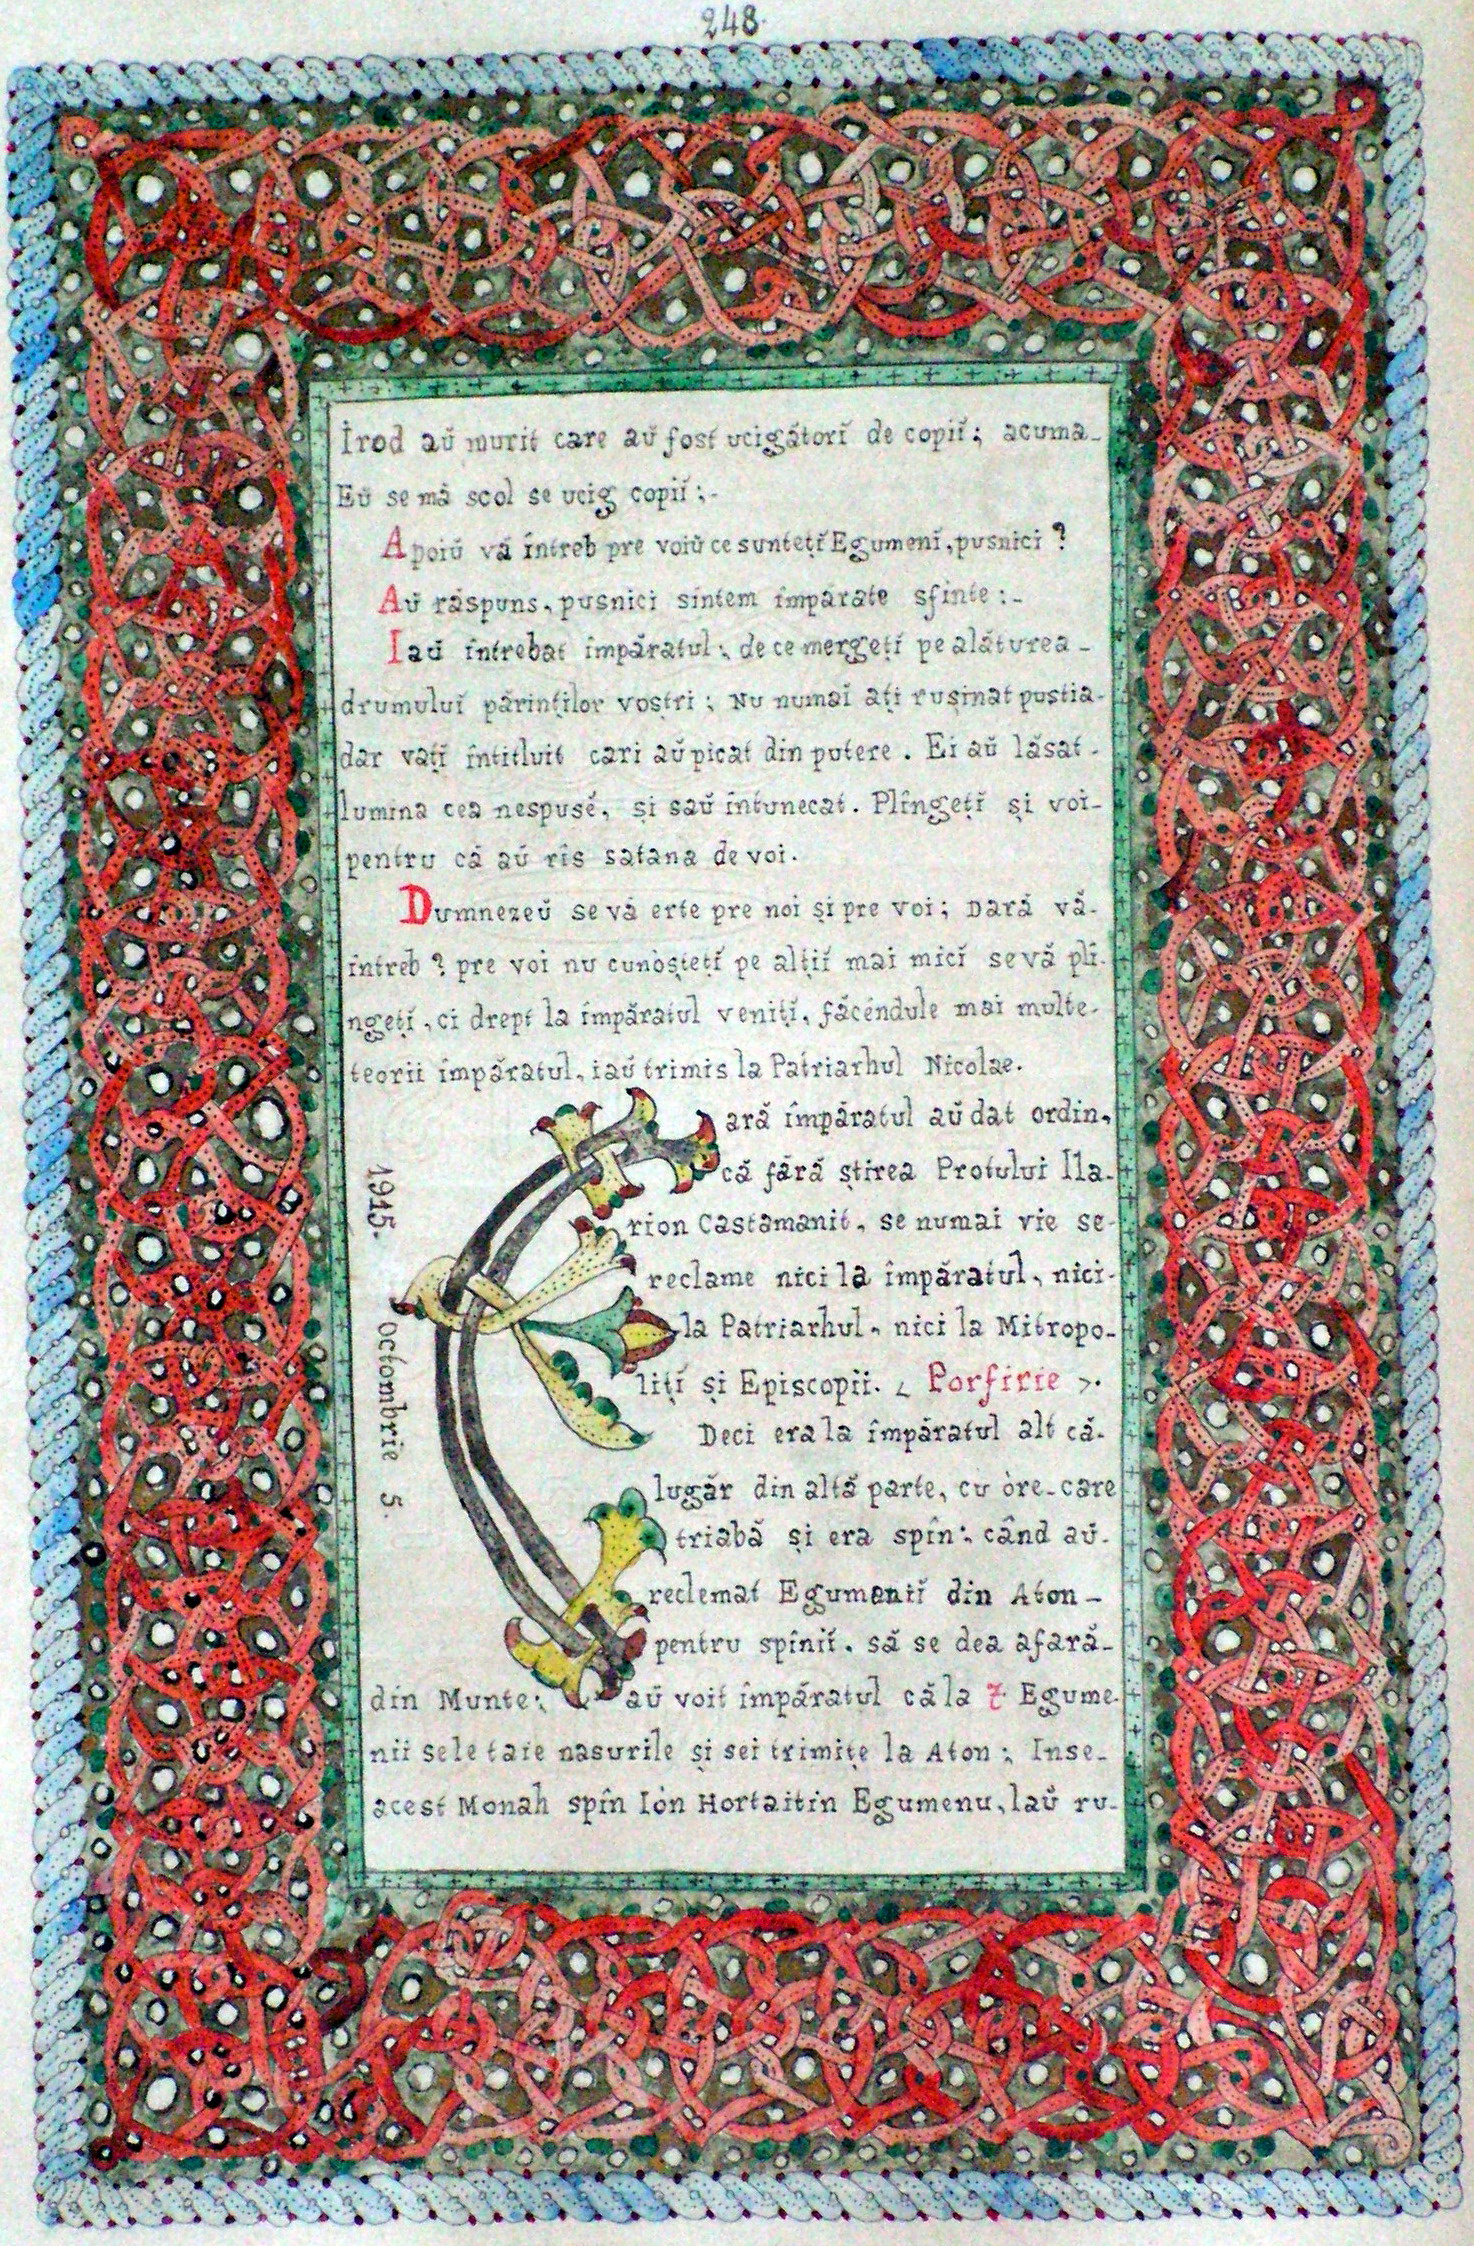 248.
Irod aŭ murit care aŭ fost ucigătorĭ de copiĭ; acuma-
Eŭ se mă scol se ucig copiĭ:.-
Apoiŭ vă întreb pre voiŭ ce suntețĭ Egumenĭ, pusnici ?
Aŭ răspuns, pusnici sîntem împărate sfinte :.-
Iaŭ întrebat împăratul:, de ce mergețĭ pe alăturea -
drumuluĭ părinților voștri ; Nu numaĭ ați rușinat pustia-
dar vațĭ întitluit cari aŭ picat din putere . Ei aŭ lăsat -
lumina cea nespusé, și saŭ întunecat. Plîngețĭ și voi-
pentru că aŭ rîs satana de voi.
Dumnezeŭ se vă erte pre noi și pre voi; Dară vă-
întreb ? pre voi nu cunòștețĭ pe alțiĭ mai micĭ se vă plî-
ngețĭ, ci drept la împăratul venițĭ, făcéndule mai multe-
teorii împăratul, iaŭ trimis la Patriarhul Nicolae.
Eară împăratul aŭ dat ordin,
că fără știrea Protului Ila-
rion Castamanit, se numai vie se-
reclame nici la împăratul, nici-
la Patriarhul, nici la Mitropo-
lițĭ și Episcopii. < Porfirie >.
Deci era la împăratul alt că-
lugăr din altă parte, cu òre-care
triabă și era spîn:, când aŭ-
reclemat Egumeniĭ din Aton -
pentru spîniĭ, să se dea afară-
din Munte:, aŭ voit împăratul că la 7 Egume-
nii se le taie nasurile și sei trimițe la Aton :, Inse-
acest Monah spîn Iòn Hortaitin Egumenu, laŭ ru-
1915.
Octombrie 5.